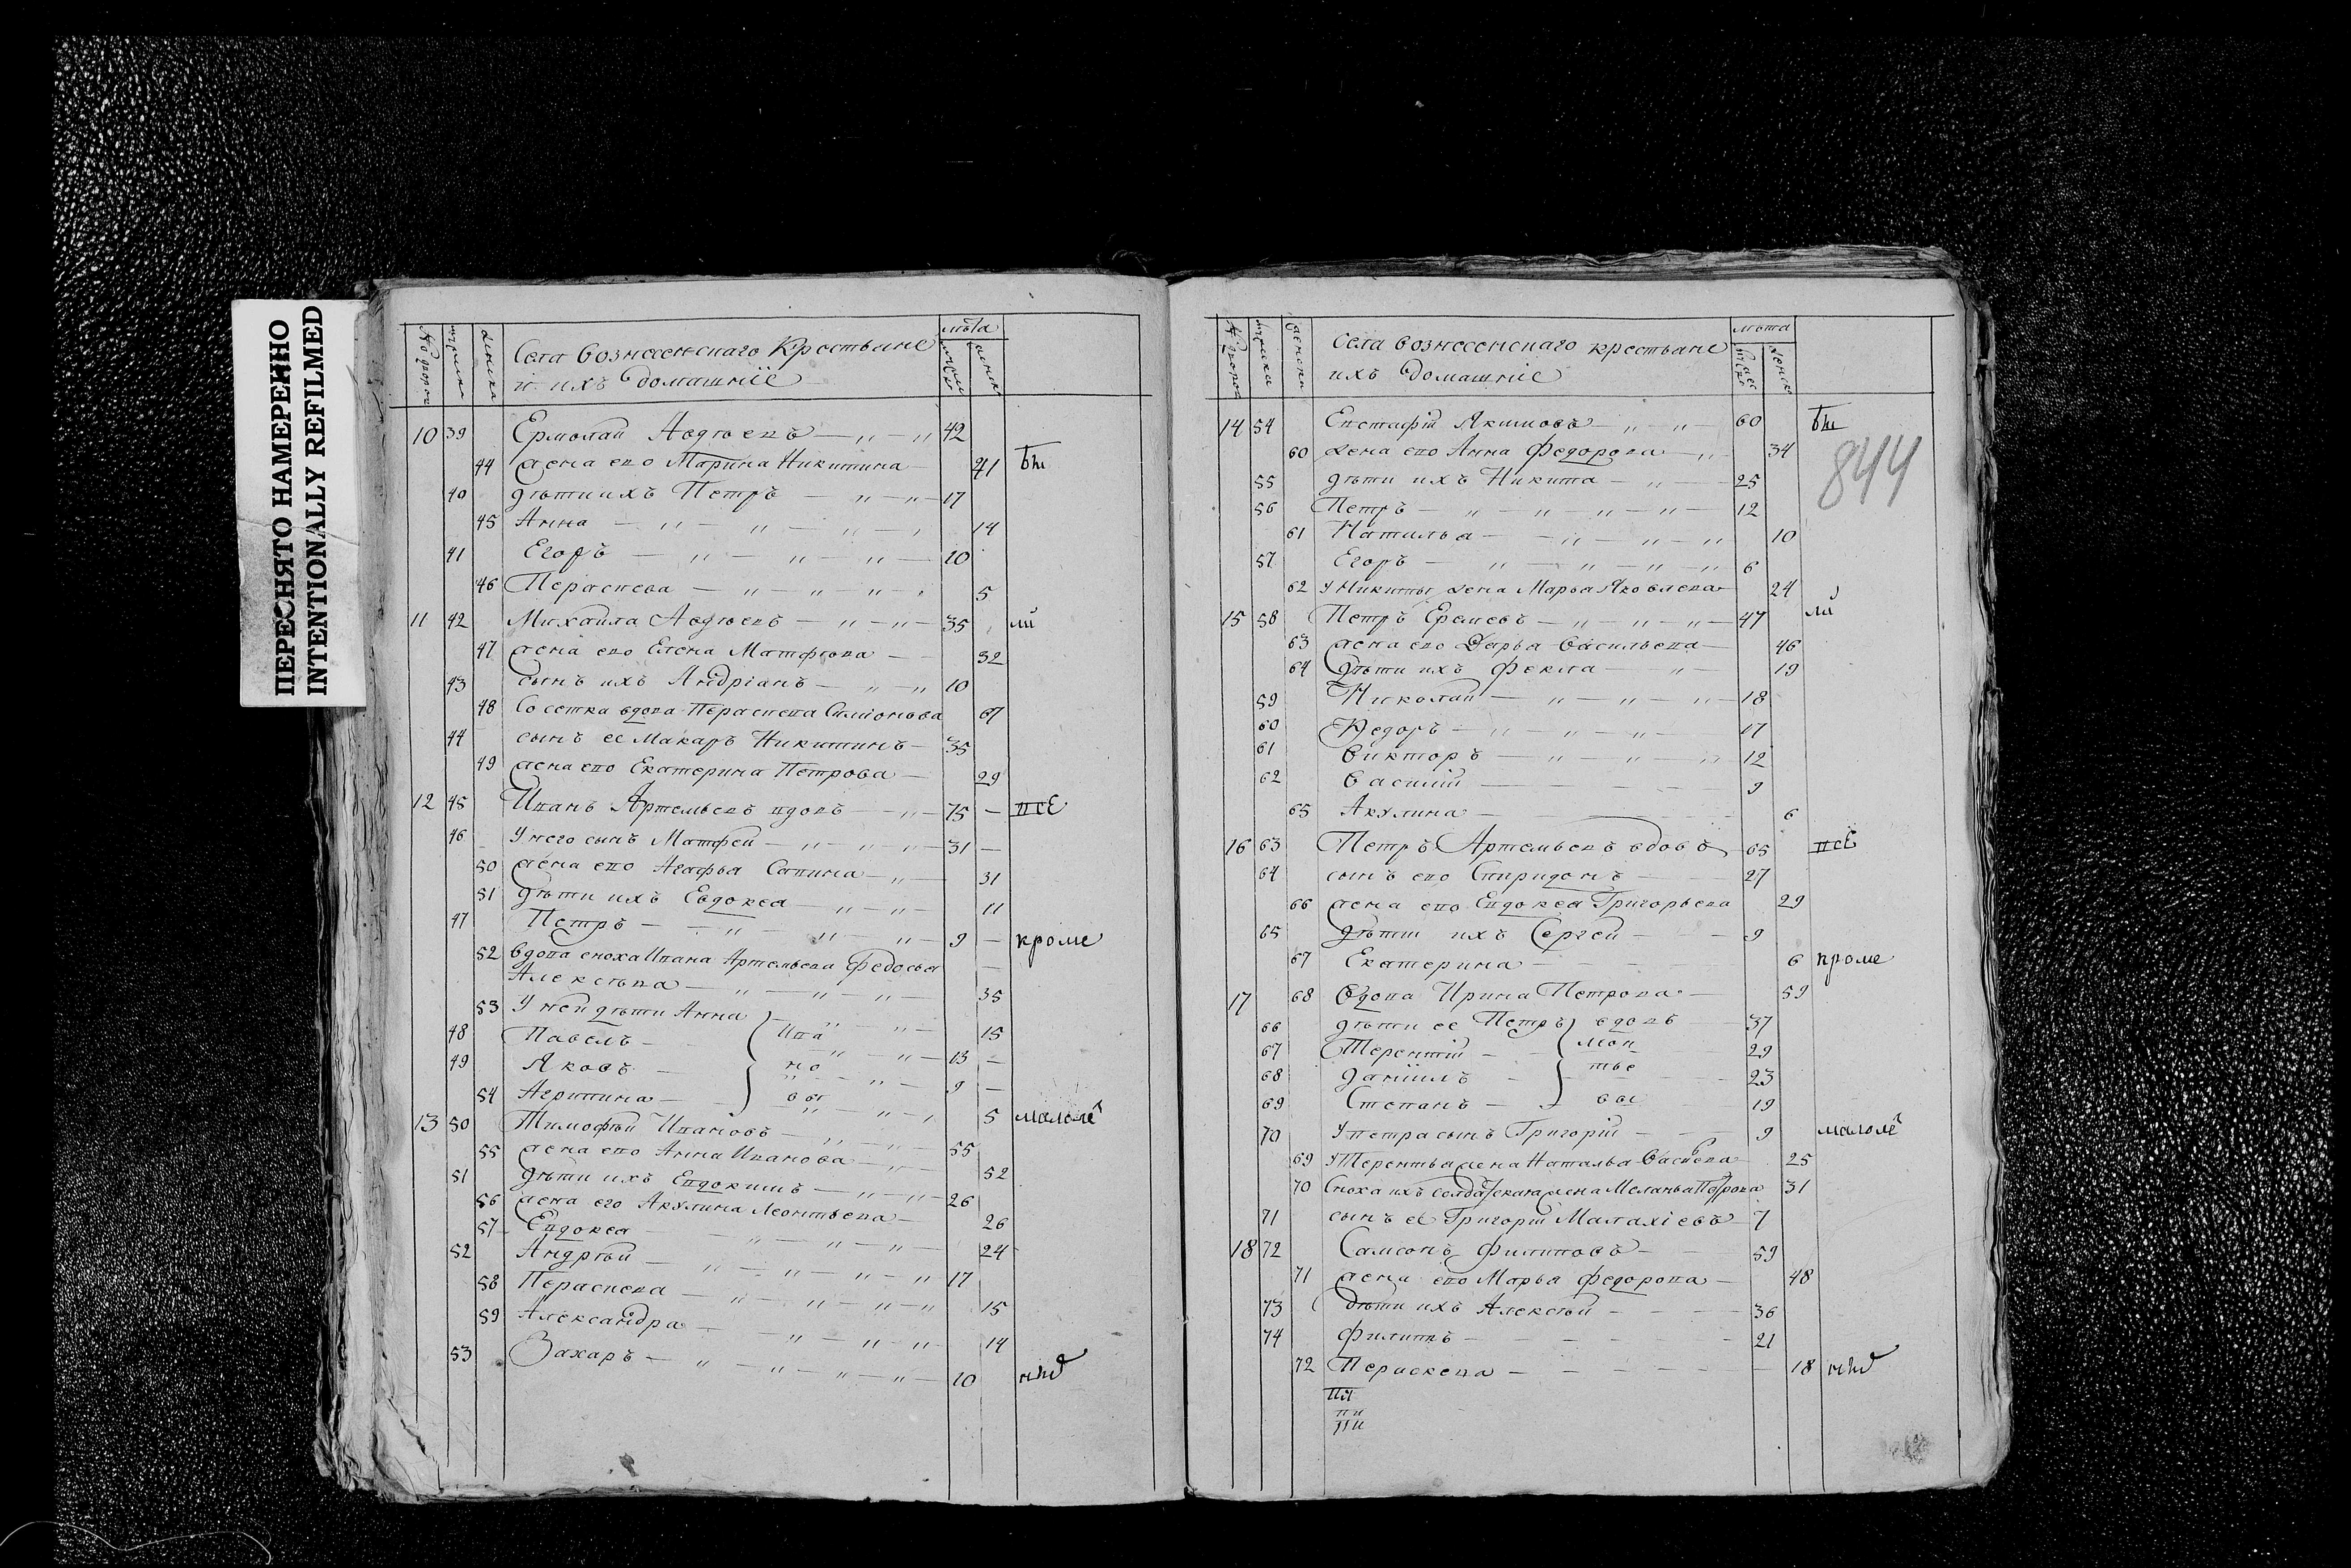 ПЕРЕСНЯТО НАМЕРЕННО
INTENTIONALLY REFILMED
лѣта
Села вознесенскаго крестьяне
и ихъ домашніе
10 39 Ермолай Авдѣевъ 42
44 жена его Марина Никитина 41 бы
40 дѣти ихъ Петръ 17
45 Анна 14
41 Егоръ 10
46 Пераскева 5
11 42 Михайла Авдѣевъ 35 ли
47 жена его Елена Матфѣева 32
43 сынъ ихъ Андріанъ 10
48 вдова Пераскева Симіонова 67
44 сынъ ее Макаръ Никитинъ 35
49 жена его Екатерина Петрова 29
12 45 Иванъ Артемьевъ вдовъ 75 — всЕ
46 У него сынъ Матфей 31 —
50 жена его Агафья Савина 31
51 дѣти ихъ Евдокея 11
47 Петръ 9 — кроме
52 вдова сноха Ивана Артемьева Федосья —
Алексѣева 35
53 У ней дѣти Анна 15
48 Павелъ Ива 13 —
49 Яковъ но 9 —
54 Агрипина вы 5 малолѣ
13 50 Тимофѣй Ивановъ 55
55 жена его Анна Иванова 52
51 дѣти ихъ Евдокимъ 26
56 жена его Акулина Леонтьева 26
57 Евдокея 24
52 Андрѣй 17
58 Пераскева 15
59 Александра 14
53 Захаръ 10
лѣта
Села вознесенскаго крестьяне
ихъ домашніе
14 54 Евстафій Якимовъ 60 бы
844
60 жена его Анна Федорова 34
55 дѣти ихъ Никита 25
56 Петръ 12
61 Наталья 10
57 Егоръ 6
62 У Никиты жена Марья Яковлева 24
15 58 Петръ Еремевъ 47 ли
63 жена его Дарья Васильева 46
64 дѣти ихъ Фекла 19
59 Николай 18
60 Федоръ 17
61 Викторъ 12
62 Василій 9
65 Акулина 6
16 63 Петръ Артемьевъ вдовъ 65 всЕ
64 сынъ его Спиридонъ 27
66 жена его Евдокея Григорьева 29
65 дѣти ихъ Сергей 9
67 Екатерина 6 кроме
17 68 Вдова Ирина Петрова 59
66 дѣти ее Петръ вдовъ 37
67 Терентій 29
68 Даніилъ 23
69 Степанъ 19
70 У петра сынъ Григорій 9 малолѣ
69 У Терентья жена Наталья 25
70 Сноха ихъ солдатская жена Меланья Петрова 31
71 сынъ ее Григорій Малахіевъ 7
18 72 Самсонъ Филиповъ 59
71 жена его Марья Федорова 48
73 дѣти ихъ Алексѣй 36
74 Филипъ 21
72 Пераскева 18